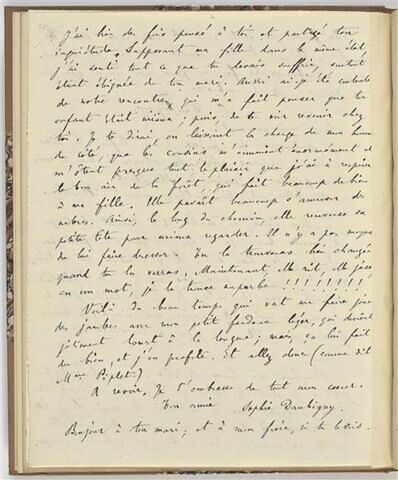 J'ai bien des fois pensé à toi et partagé ton
inquiétude. Supposant ma fille dans le même état,
j'ai senti tout ce que tu devais souffrir, surtout
étant éloignée de ton mari. Aussi ai-je été contente
de notre rencontre, qui m'a fait penser que ton
enfant était mieux ; puis, de te voir revenir chez
toi. Je te dirai, en laissant la charge de mon
de côté, que les cousins m'ennuient énormément et
m'ôtent presque tout le plaisir que j'ai à respirer
le bon air de la forêt, qui fait beaucoup de bien
à ma fille. Elle paraît beaucoup s'amuser des
arbres. Ainsi, le long du chemin, elle renverse sa
petite tête pour mieux regarder. Il n'y a pas moyen
de la faire dresser. Tu la trouveras bien changée
quand tu la verras. Maintenant, elle rit, elle jase,
en un mot, je la trouve superbe !!!!!!!!
Voilà du beau temps qui va me faire jouer
des jambes avec mon petit fardeau léger, qui devient
joliment lourd à la longue ; mais, ça lui fait
du bien, et j'en profite. Et allez donc (comme dit
Mme Pipelet.)
A revoir, Je t'embrasse de tout mon coeur.
Ton amie Sophie Daubigny.
Bonjour à ton mari ; et à mon frère, si tu le vois.